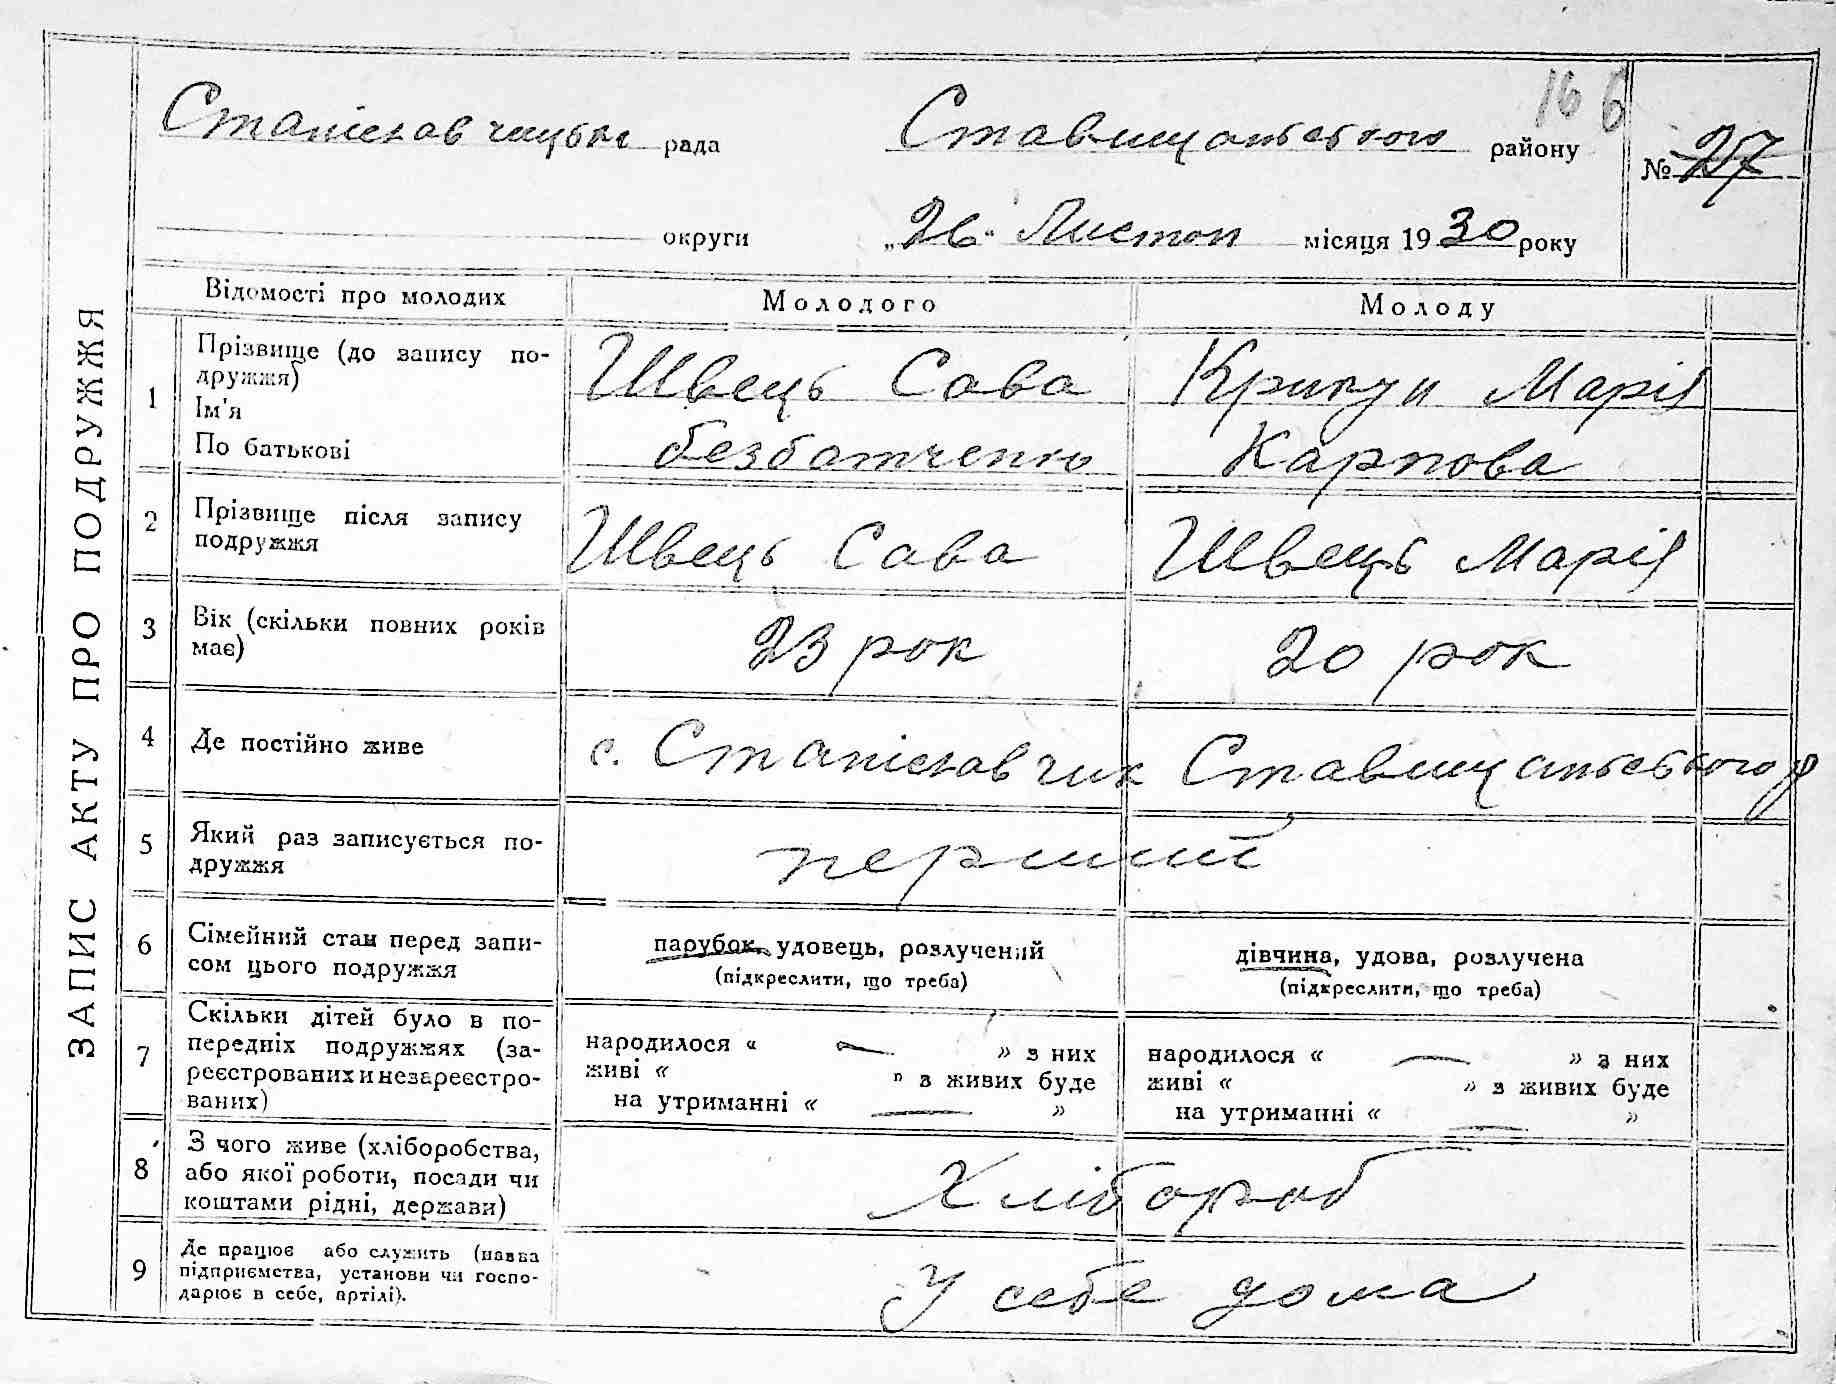 ЗАПИС АКТУ ПРО ПОДРУЖЖЯ
166
Станіславчицька рада Ставищанського району № 27
округи „26“ Листоп місяця 1930 року
Відомості про молодих Молодого Молоду
1 Прізвище (до запису по-
дружжя)
Ім'я
По батькові
Швець Сава Крикун Марія
безбатченко Карпова
2 Прізвище після запису
подружжя
Швець Сава Швець Марія
3 Вік (скільки повних років
має)
23 рок 20 рок
4 Де постійно живе с. Станіславчик Ставищанського р
5 Який раз записується по-
дружжя
перший
6 Сімейний стан перед запи-
сом цього подружжя
парубок, удовець, розлучений
(підкреслити, що треба)
дівчина, удова, розлучена
(підкреслити, що треба)
7 Скільки дітей було в по-
передніх подружжях (за-
реєстрованих и незареєстро-
ваних)
народилося « — » з них
живі « " з живих буде
на утриманні « — »
народилося « — » з них
живі « » з живих буде
на утриманні « — »
8 З чого живе (хліборобства,
або якої роботи, посади чи
коштами рідні, держави)
Хлібороб
9 Де працює або служить (назва
підприємства, установи чи госпо-
дарює в себе, артілі).
У себе дома